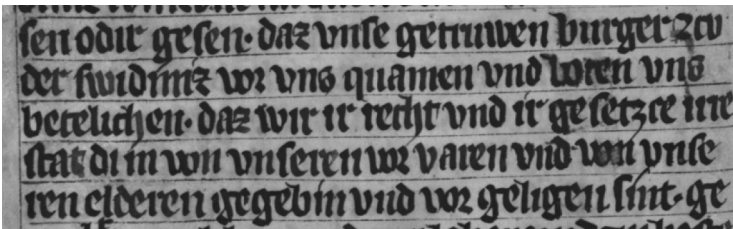 sen odir gesen. daz vnse getruwen burger zcu
der swidnitz vor vns quamen vnd boten vns
betelichen. daz wir ir recht vnd ir gesetzce irre
stat di in von vnseren vor varen vnd von vnse
ren elderen gegebin vnd vor geligen sint. ge